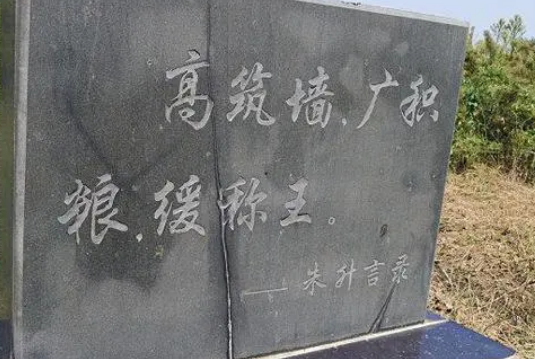 高筑墙，广积
粮，缓称王。
——朱升言录